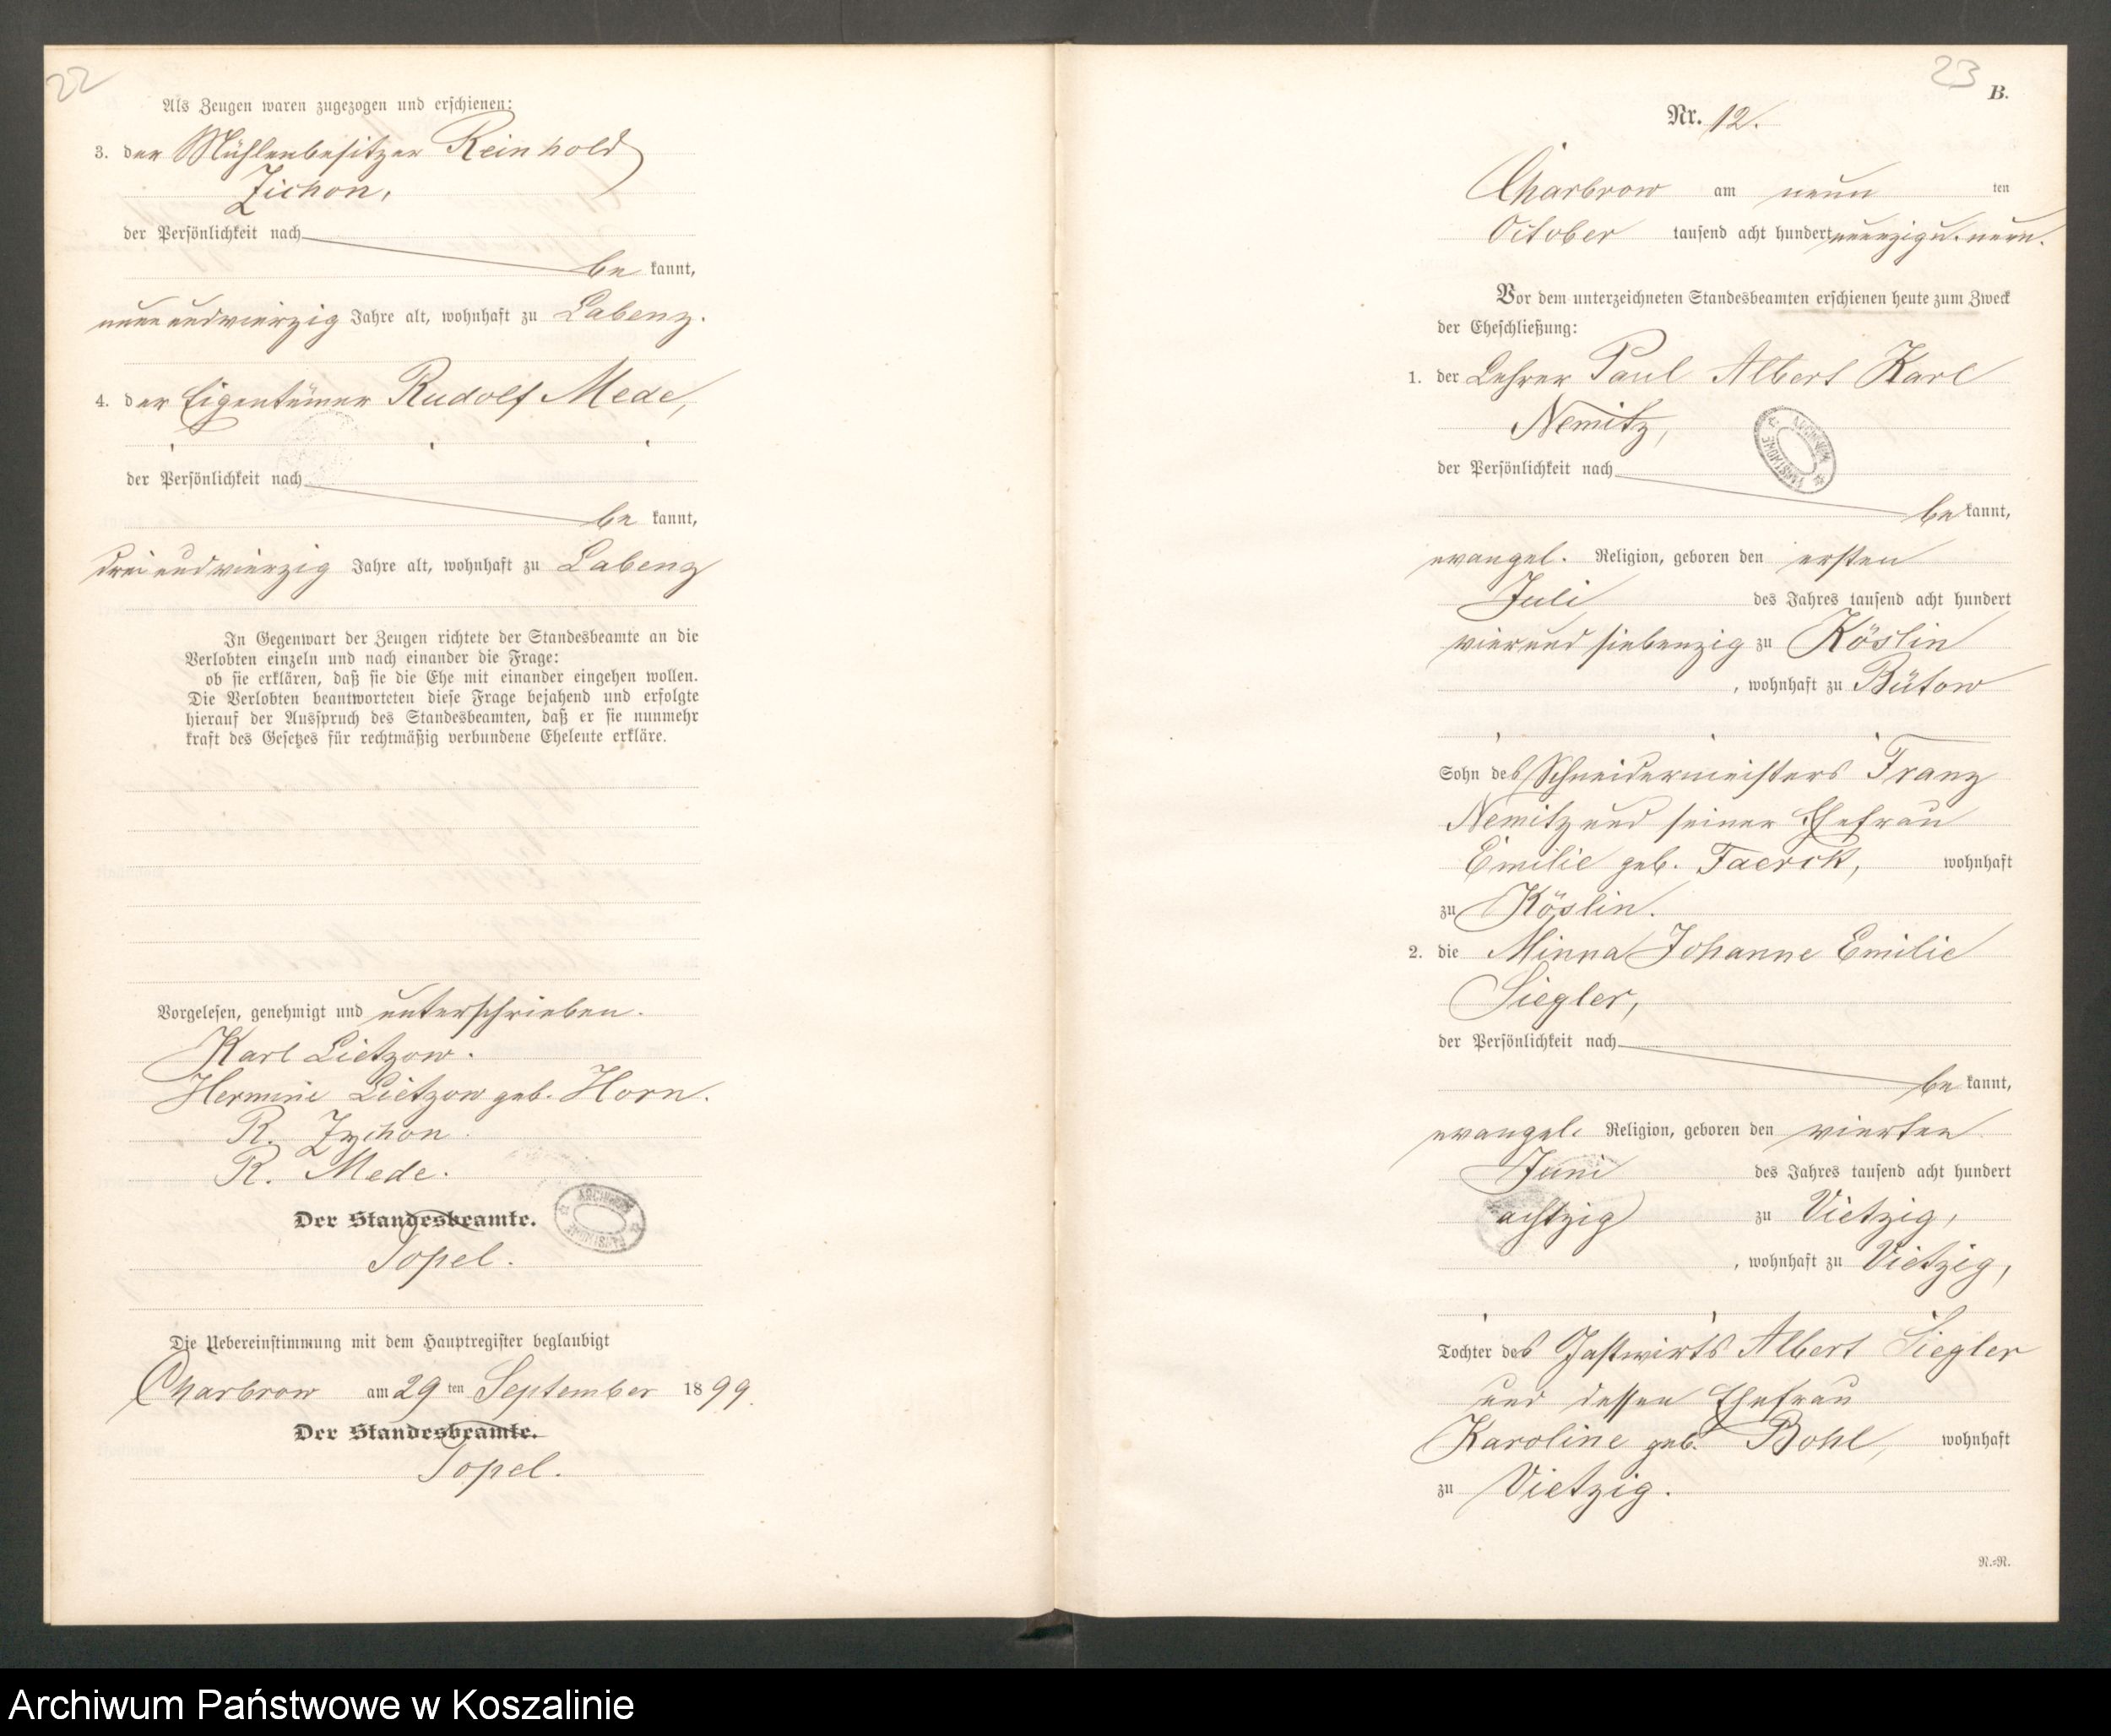 22
Als Zeugen waren zugezogen und erschienen:
3. der Mühlenbesitzer Reinhold
Zichon,
der Persönlichkeit nach
be kannt,
neun undvierzig Jahre alt, wohnhaft zu Labenz.
4. der Eigentümer Rudolf Mede,
der Persönlichkeit nach
be kannt,
drei undvierzig Jahre alt, wohnhaft zu Labenz
In Gegenwart der Zeugen richtete der Standesbeamte an die
Verlobten einzeln und nach einander die Frage:
ob sie erklären, daß sie die Ehe mit einander eingehen wollen.
Die Verlobten beantworteten diese Frage bejahend und erfolgte
hierauf der Ausspruch des Standesbeamten, daß er sie nunmehr
kraft des Gesetzes für rechtmäßig verbundene Eheleute erkläre.
Vorgelesen, genehmigt und unterschrieben.
Karl Lietzow.
Hermine Lietzow geb. Horn.
R. Zychon.
R. Mede.
Der Standesbeamte.
Topel.
ARCHIWUM PAŃSTWOWE
Die Uebereinstimmung mit dem Hauptregister beglaubigt
Charbrow am 29 ten September 1899.
Der Standesbeamte.
Topel.
23
B.
Nr. 12.
Charbrow am neun ten
October tausend acht hundert neunzig u. neun.
Vor dem unterzeichneten Standesbeamten erschienen heute zum Zweck
der Eheschließung:
1. der Lehrer Paul Albert Karl
Nemitz,
ARCHIWUM PAŃSTWOWE
der Persönlichkeit nach
be kannt,
evangel. Religion, geboren den ersten
Juli des Jahres tausend acht hundert
vier und siebenzig zu Köslin
, wohnhaft zu Bütow
Sohn des Schneidermeisters Franz
Nemitz und seiner Ehefrau
Emilie geb. Taerck, wohnhaft
zu Köslin.
2. die Minna Johanne Emilie
Siegler,
der Persönlichkeit nach
be kannt,
evangel. Religion, geboren den vierten
Juni des Jahres tausend acht hundert
achtzig zu Vietzig,
, wohnhaft zu Vietzig,
Tochter des Gastwirts Albert Siegler
und dessen Ehefrau
Karoline geb. Bohl, wohnhaft
zu Vietzig.
N.=N.
Archiwum Państwowe w Koszalinie